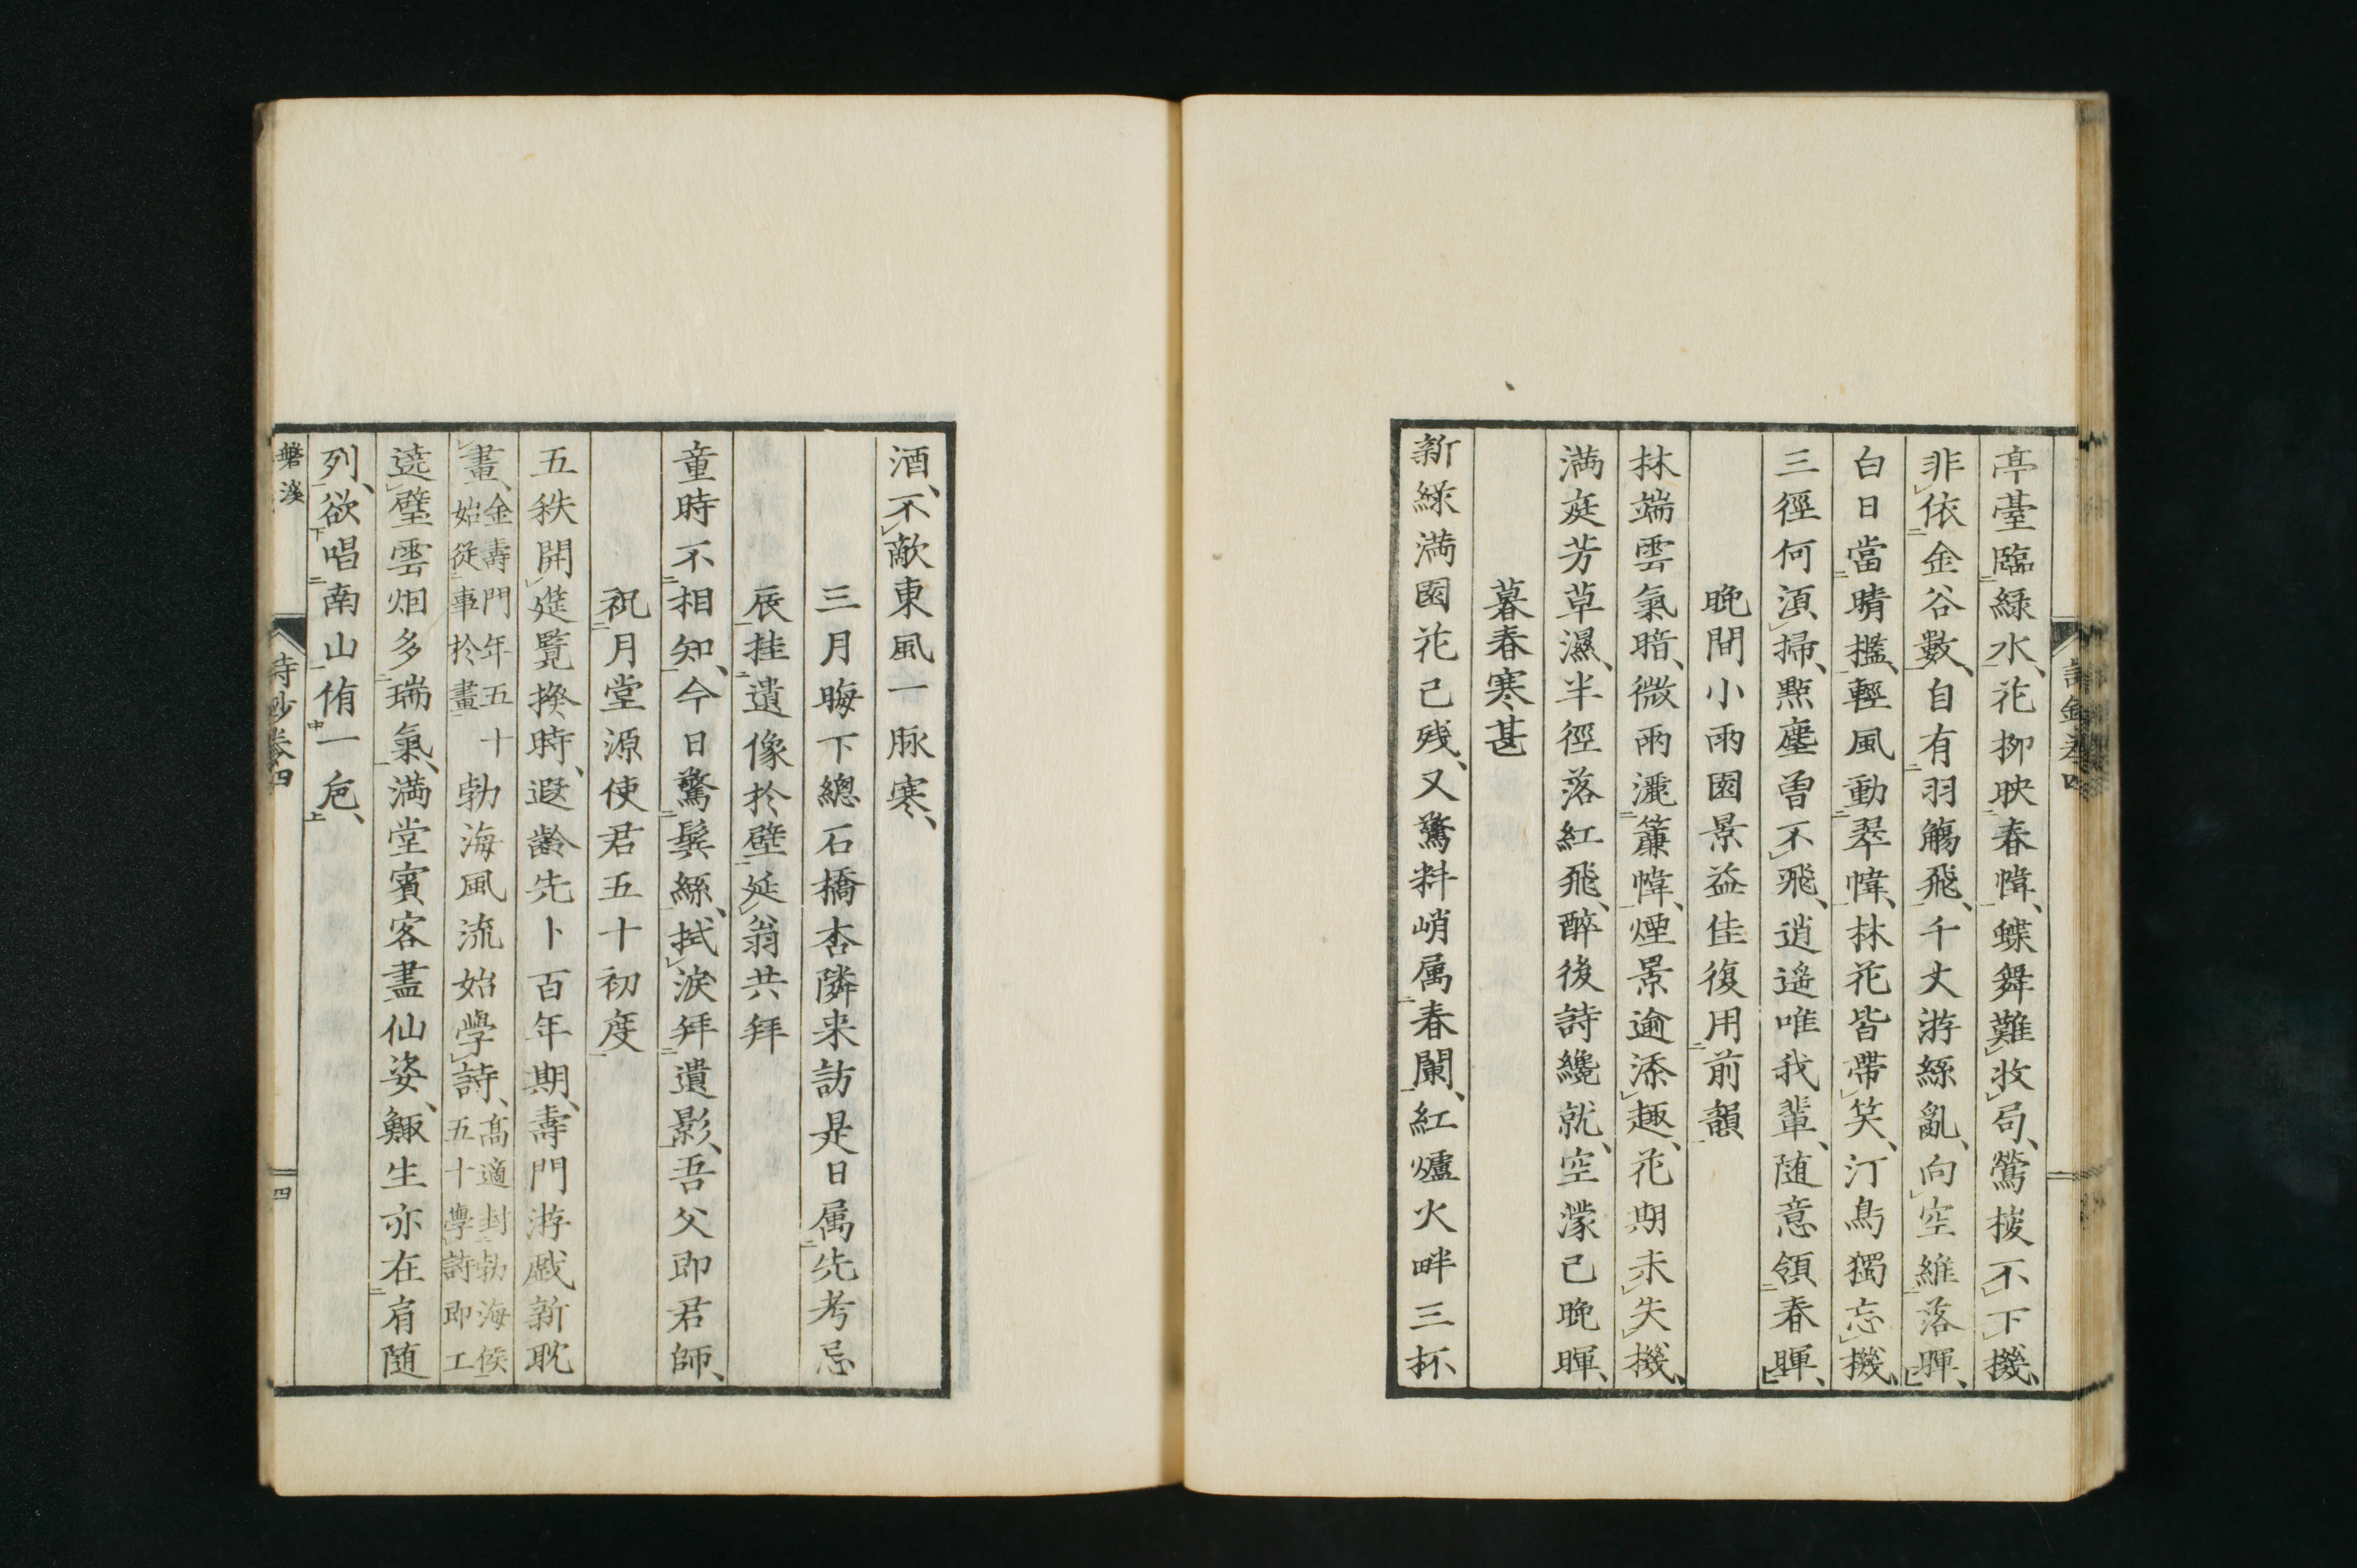 亭臺臨綠水、花柳映春幃、蝶舞難收局、鶯梭不下機、
非依金谷數、自有羽觴飛、千丈游絲亂、向空維落暉、
白日當晴檻、輕風動翠幃、林花皆帶笑、汀鳥獨忘機、
三徑何須掃、點塵曽不飛、逍遙唯我輩、随意領春暉、
晩間小雨園景益佳復用前韻
林端雲氣暗、微雨灑簾幃、煙景逾添趣、花期未失機、
満庭芳草濕、半徑落紅飛、醉後詩纔就、空濛已晩暉、
暮春寒甚
新綠満園花已残、又驚料峭属春闌、紅爐火畔三杯
酒、不敵東風一脉寒、
三月晦下總石橋杏隣来訪是日属先考忌
辰挂遺像於壁延翁共拜
童時不相知、今日驚鬓絲、拭淚拜遺影、吾父即君師、
祝月堂源使君五十初度
五秩開筵覽揆時、遐齢先卜百年期、壽門游戲新耽
畫、金壽門年五十始從事於畫 勃海風流始學詩、髙適封勃海侯五十學詩即工
遶壁雲烟多瑞氣、満堂賓客盡仙姿、鯫生亦在肩随
列、欲唱南山侑一巵、
磐溪 詩鈔卷四 四